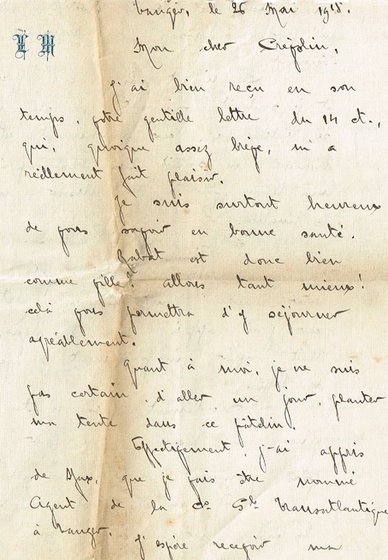 L M
Tanger, le 26 Mai 1918.
Mon cher Créplin,
J'ai bien reçu en son
temps, votre gentille lettre du 14 ct.,
qui, quoique assez brève, m'a
réellement fait plaisir.
Je suis surtout heureux
de vous savoir en bonne santé.
Rabat est donc bien
comme ville; allons tant mieux!
celà vous permettra d'y séjourner
agréablement.
Quant à moi, je ne suis
pas certain d'aller un jour, planter
ma tente dans ce patelin.
Effectivement, j'ai appris
de, que je vais être nommé
Agent de la Cie Gle Transatlantique
à Tanger. J'espère recevoir ma